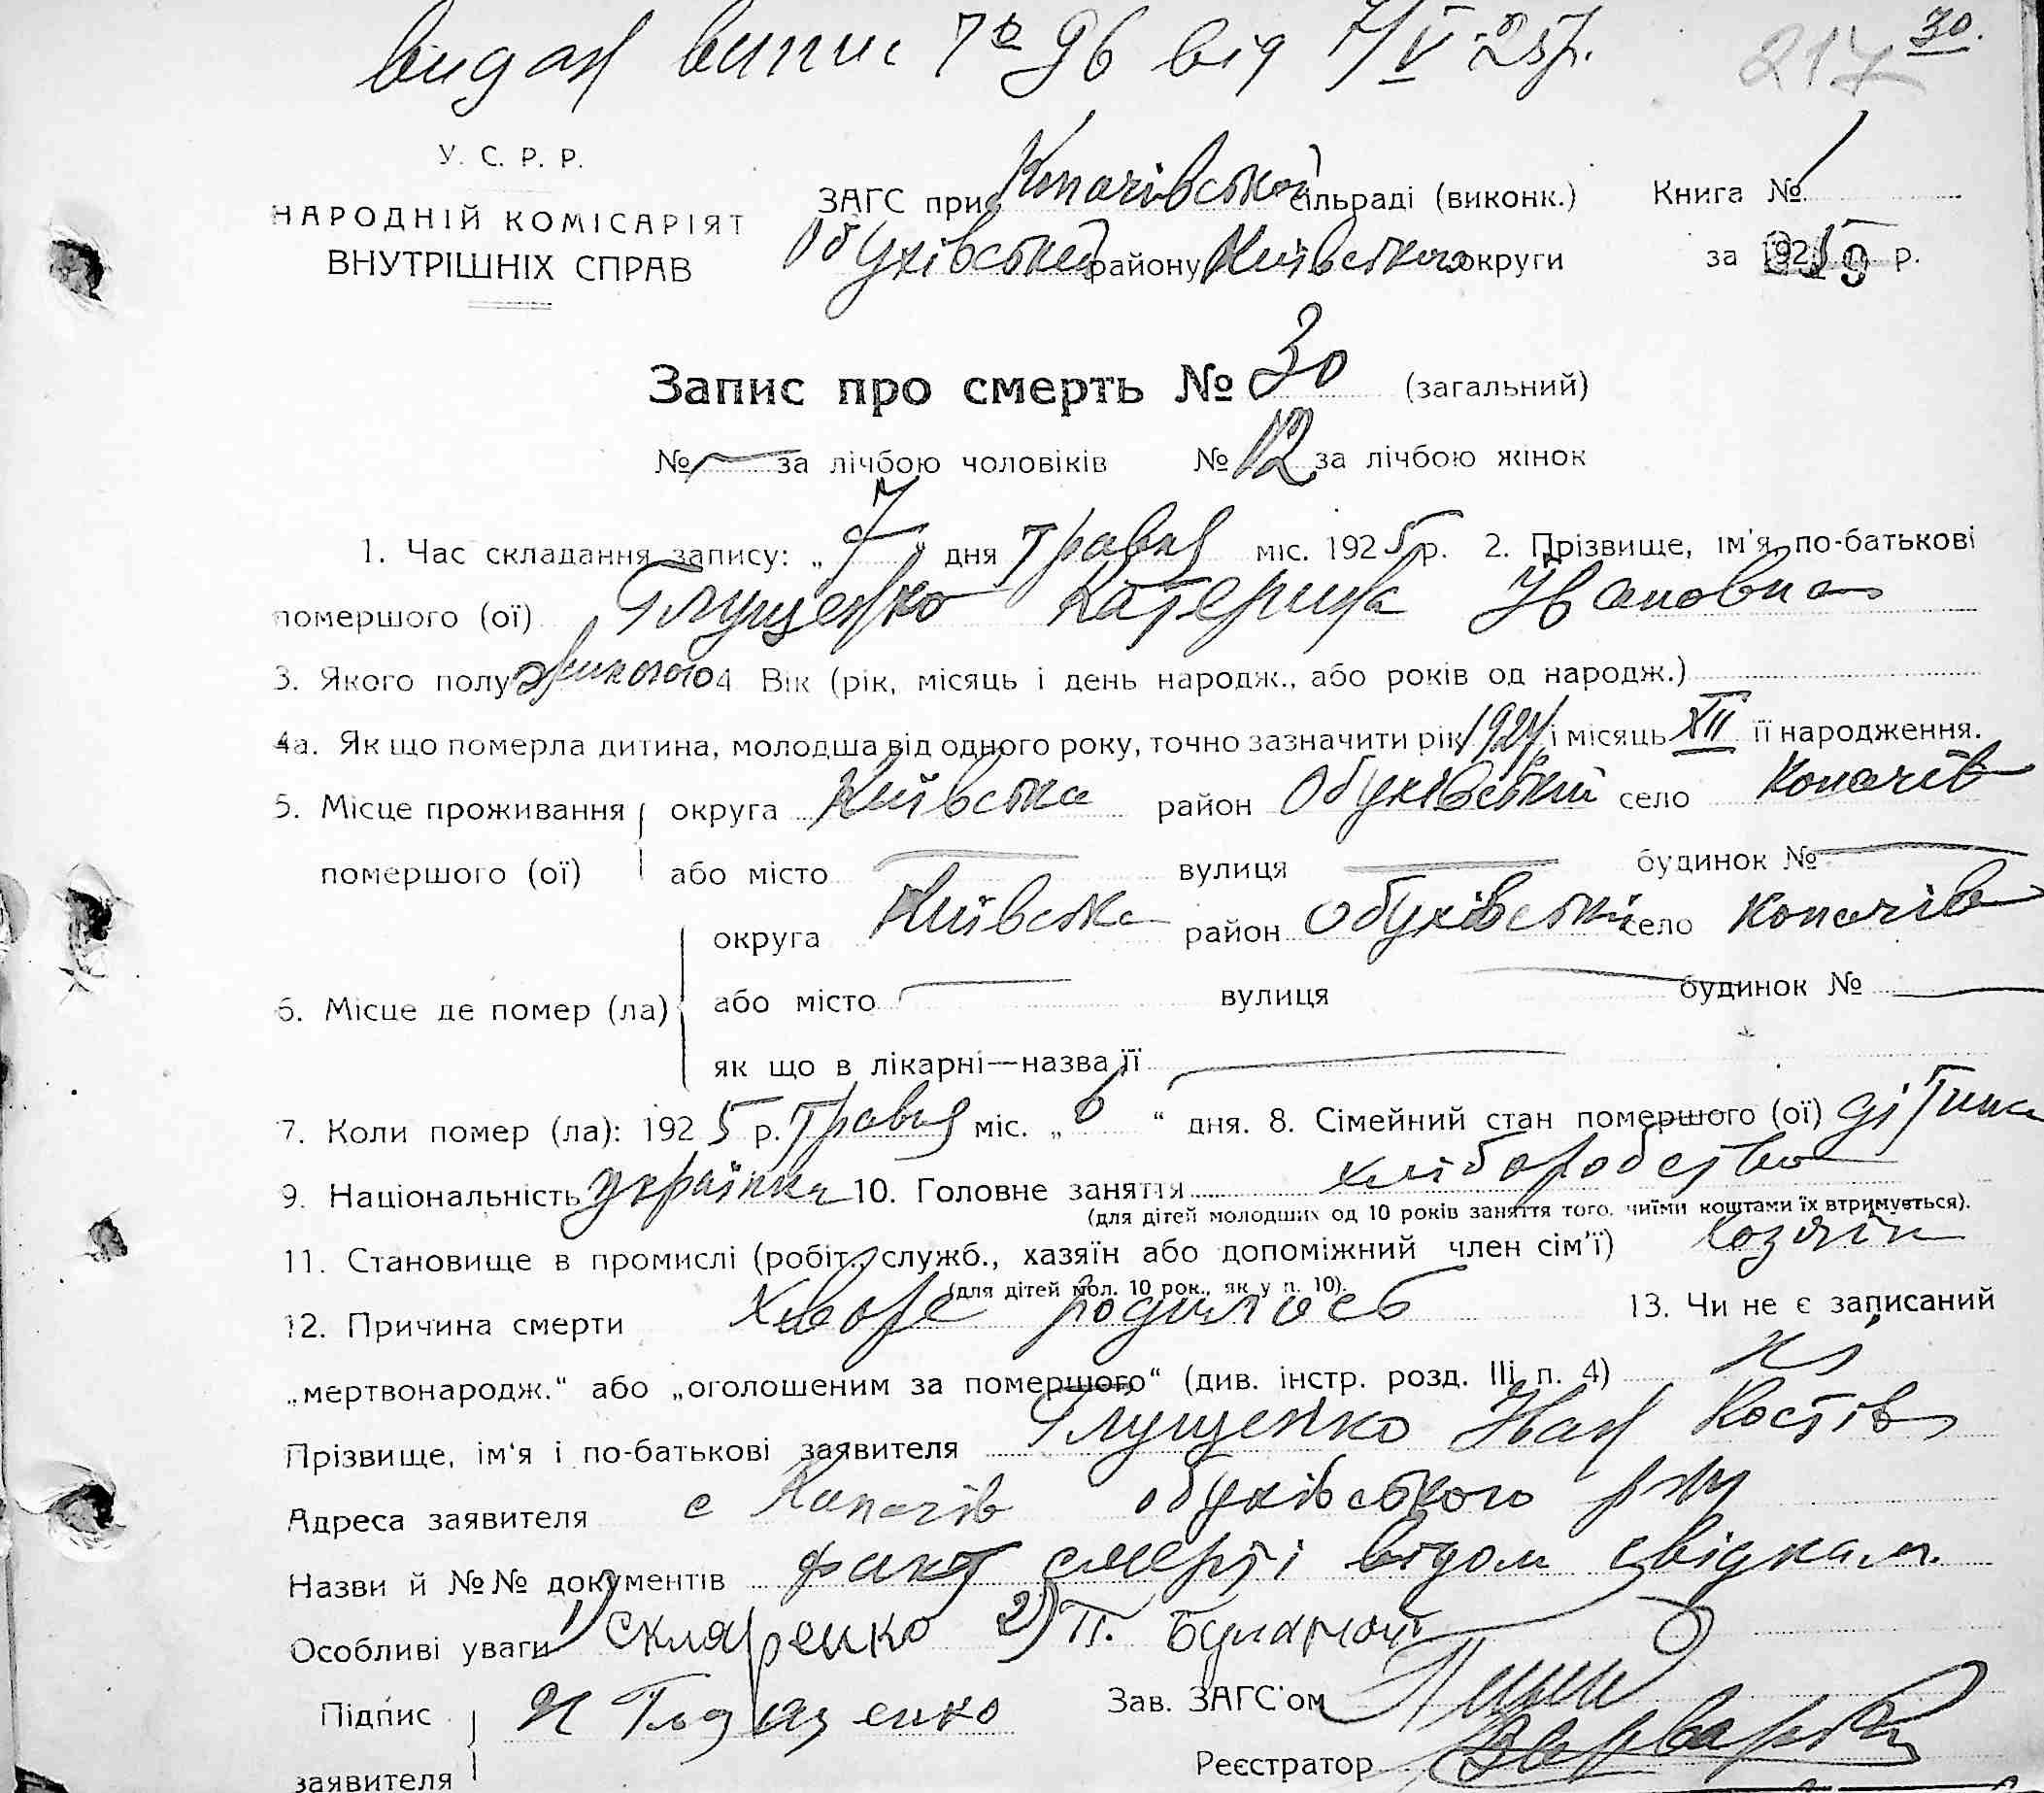 видан випис № 96 від 7/V-25р. 217 30.
У. С. Р. Р.
НАРОДНІЙ КОМІСАРІЯТ
ВНУТРІШНІХ СПРАВ
ЗАГС при Копачівській сільраді (виконк.) Книга № 1
Обухівський району Київського округи за 1925 р.
Запис про смерть № 30 (загальний)
№ — за лічбою чоловіків № 12 за лічбою жінок
1. Час складання запису: „7“ дня Травня міс. 1925 р. 2. Прізвище, ім'я, по-батькові
помершого (ої) Глущенко Катерина Івановна
3. Якого полу жиночого 4 Вік (рік, місяць і день народж., або років од народж.)
4а. Як що померла дитина, молодша від одного року, точно зазначити рік 1924 і місяць XII її народження.
5. Місце проживання округа Київська район Обухівський село Копачів
помершого (ої) або місто — вулиця — будинок № —
округа Київська район Обухівський село Копачів
6. Місце де помер (ла) або місто — вулиця — будинок № —
як що в лікарні—назва її —
7. Коли помер (ла): 1925 р. Травня міс. „6“ дня. 8. Сімейний стан помершого (ої) дітина
9. Національність українка 10. Головне заняття хліборобство
(для дітей молодших од 10 років заняття того, чиїми коштами їх втримується).
11. Становище в промислі (робіт., служб., хазяїн або допоміжний член сім'ї) хозяїн
(для дітей мол. 10 рок., як у п. 10).
12. Причина смерти хворе родилось 13. Чи не є записаний
„мертвонародж.“ або „оголошеним за помершого“ (див. інстр. розд. III п. 4) ні
Прізвище, ім'я і по-батькові заявителя Глущенко Іван Костів
Адреса заявителя с Копачів обухівського р-ну
Назви й №№ документів факт смерті відом свідкам.
Особливі уваги 1) Скляренко 2) П.
Підпис И Глущенко Зав. ЗАГС'ом
заявителя Реєстратор